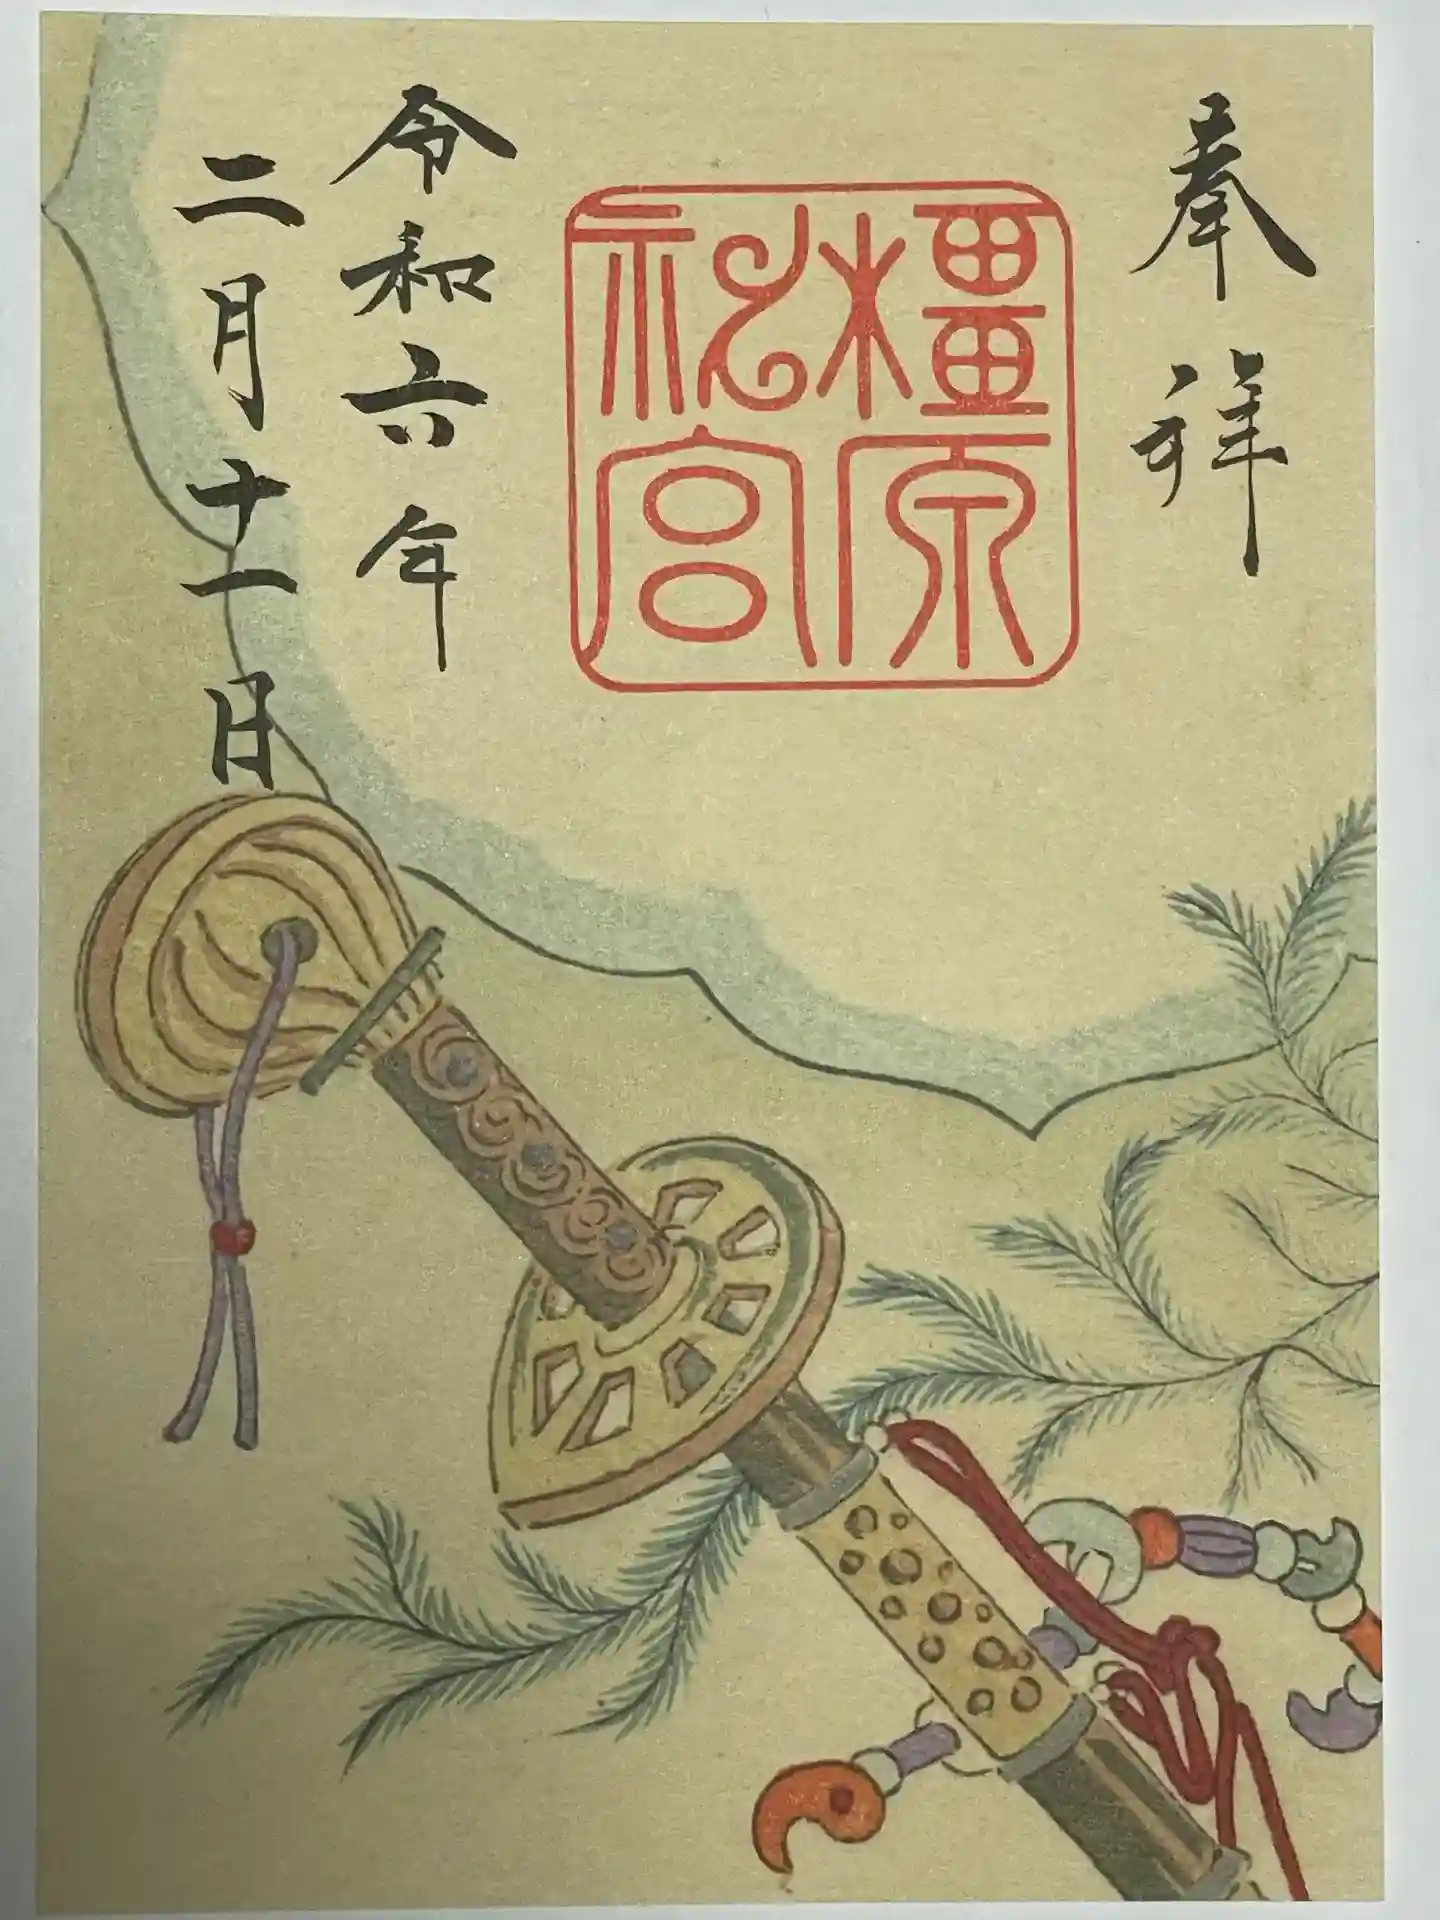 奉拝
橿原
神宮
令和六年
二月十一日